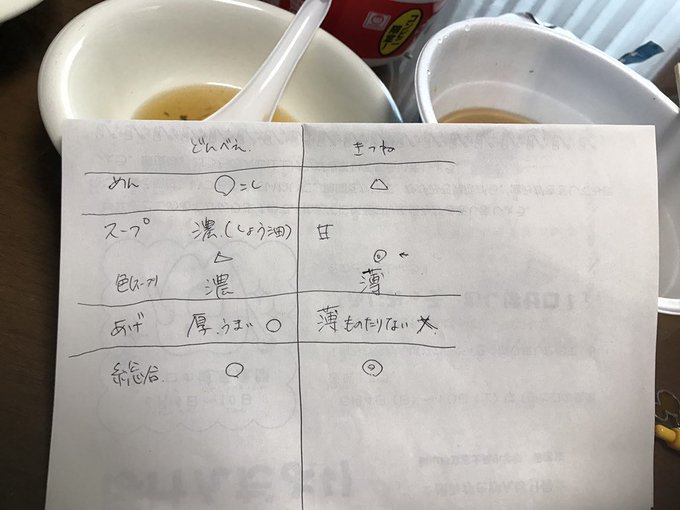 どんべえ. きつね
めん ○こし △
スープ 濃.(しょう油) 甘
△ ◎←
色(スープ) 濃 薄
あげ 厚.うまい ○ 薄 ものたりない ×
総合. ○ ◎